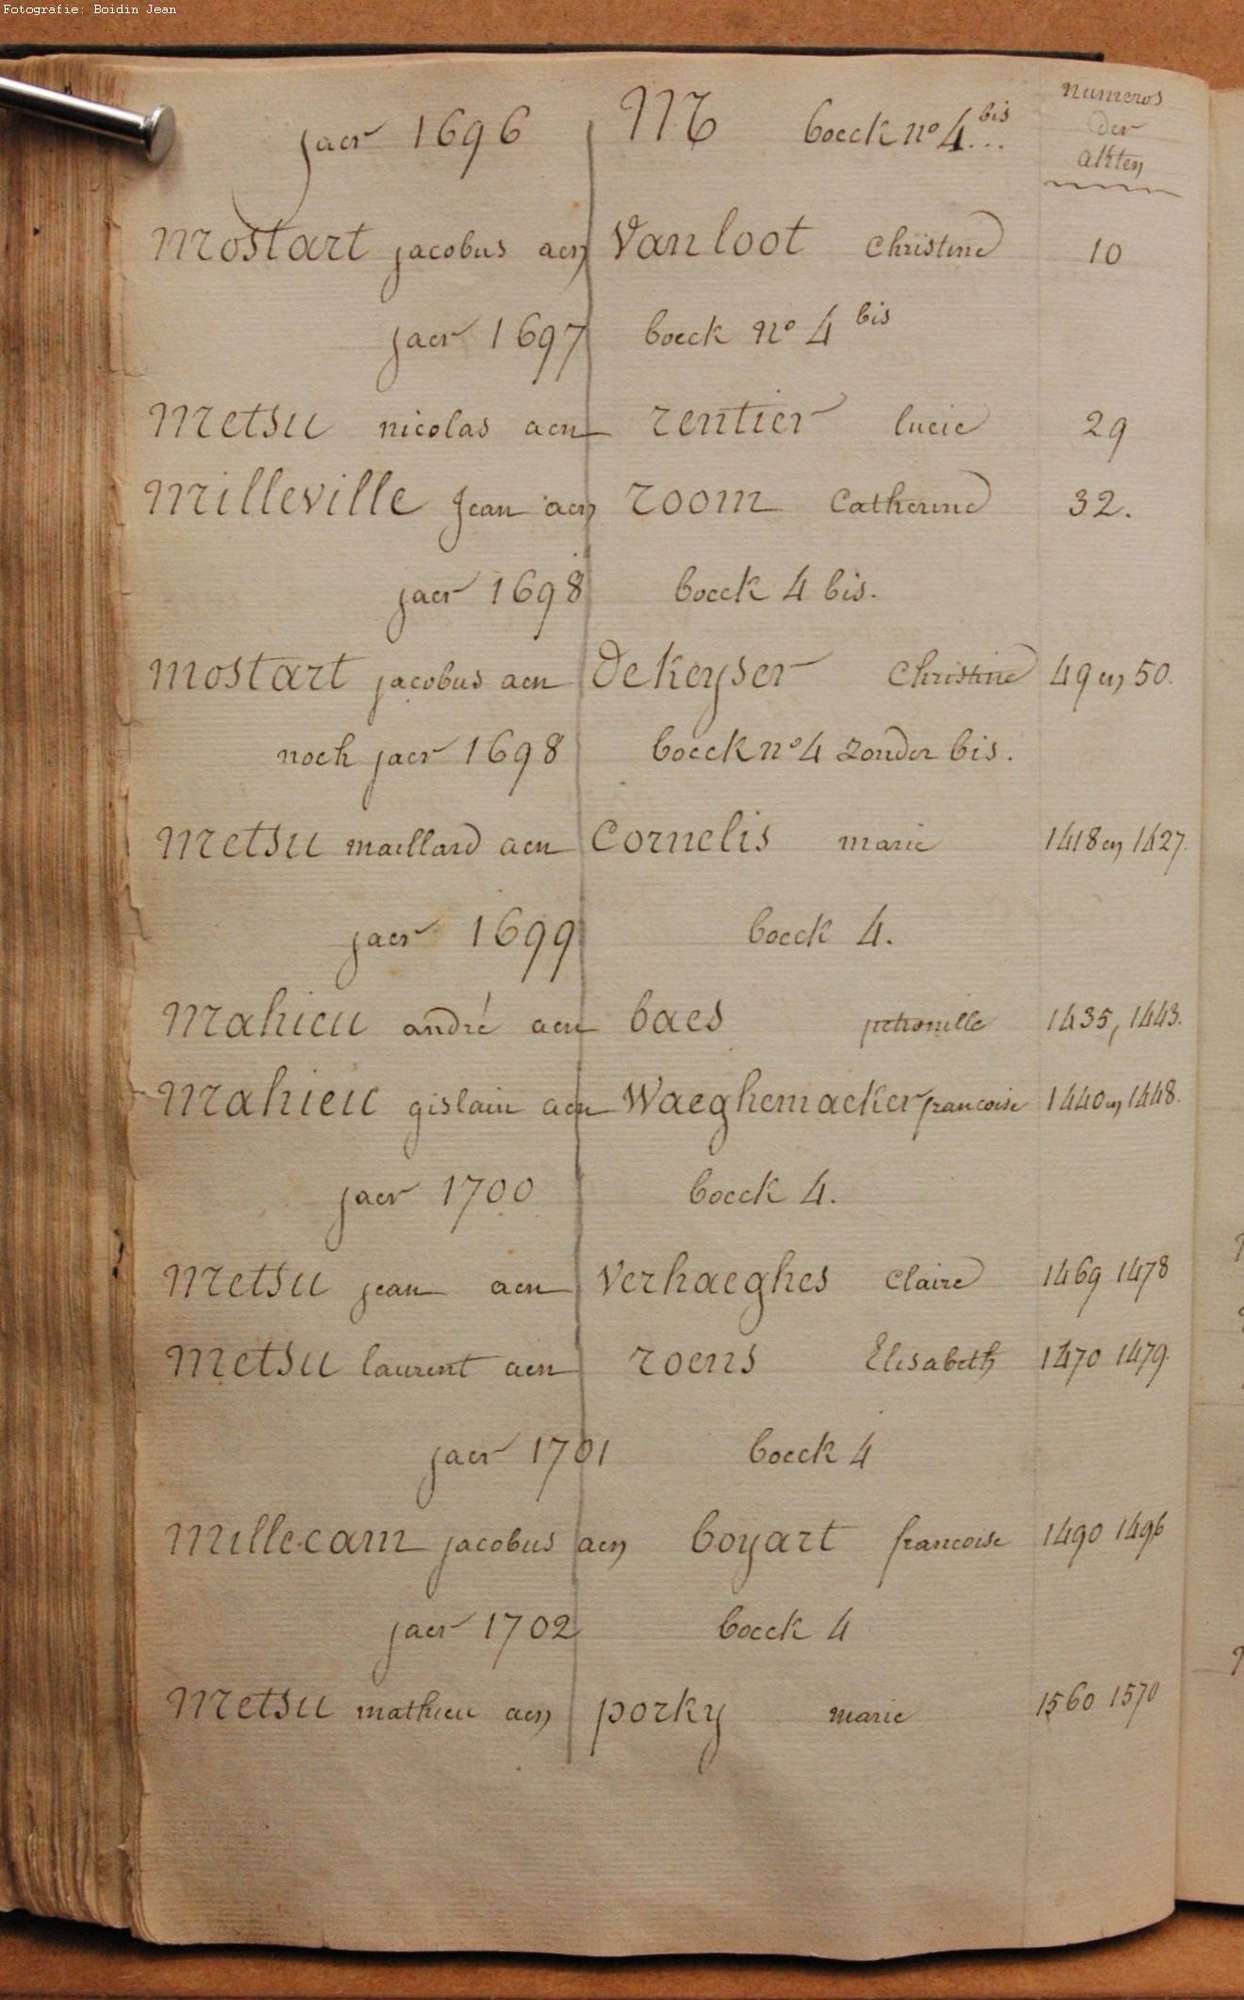 Fotografie: Boidin Jean
jaer 1696 M boeck no 4 bis...
numeros
der
akten
mostart jacobus aen Vanloot christine 10
jaer 1697 boeck no 4 bis
metsu nicolas aen rentier lucie 29
milleville jean aen room catherine 32.
jaer 1698 boeck 4 bis.
mostart jacobus aen dekeyser christine 49 en 50.
noch jaer 1698 boeck no 4 zonder bis.
metsu maillard aen cornelis marie 1418 en 1427.
jaer 1699 boeck 4.
mahieu andré aen baes petronille 1435, 1443.
mahieu gislain aen Waeghemacker francoise 1440 en 1448.
jaer 1700 boeck 4.
metsu jean aen verhaeghes claire 1469 1478
metsu laurent aen roens Elisabeth 1470 1479.
jaer 1701 boeck 4
millecam jacobus aen boyart francoise 1490 1496
jaer 1702 boeck 4
metsu mathieu aen porky marie 1560 1570